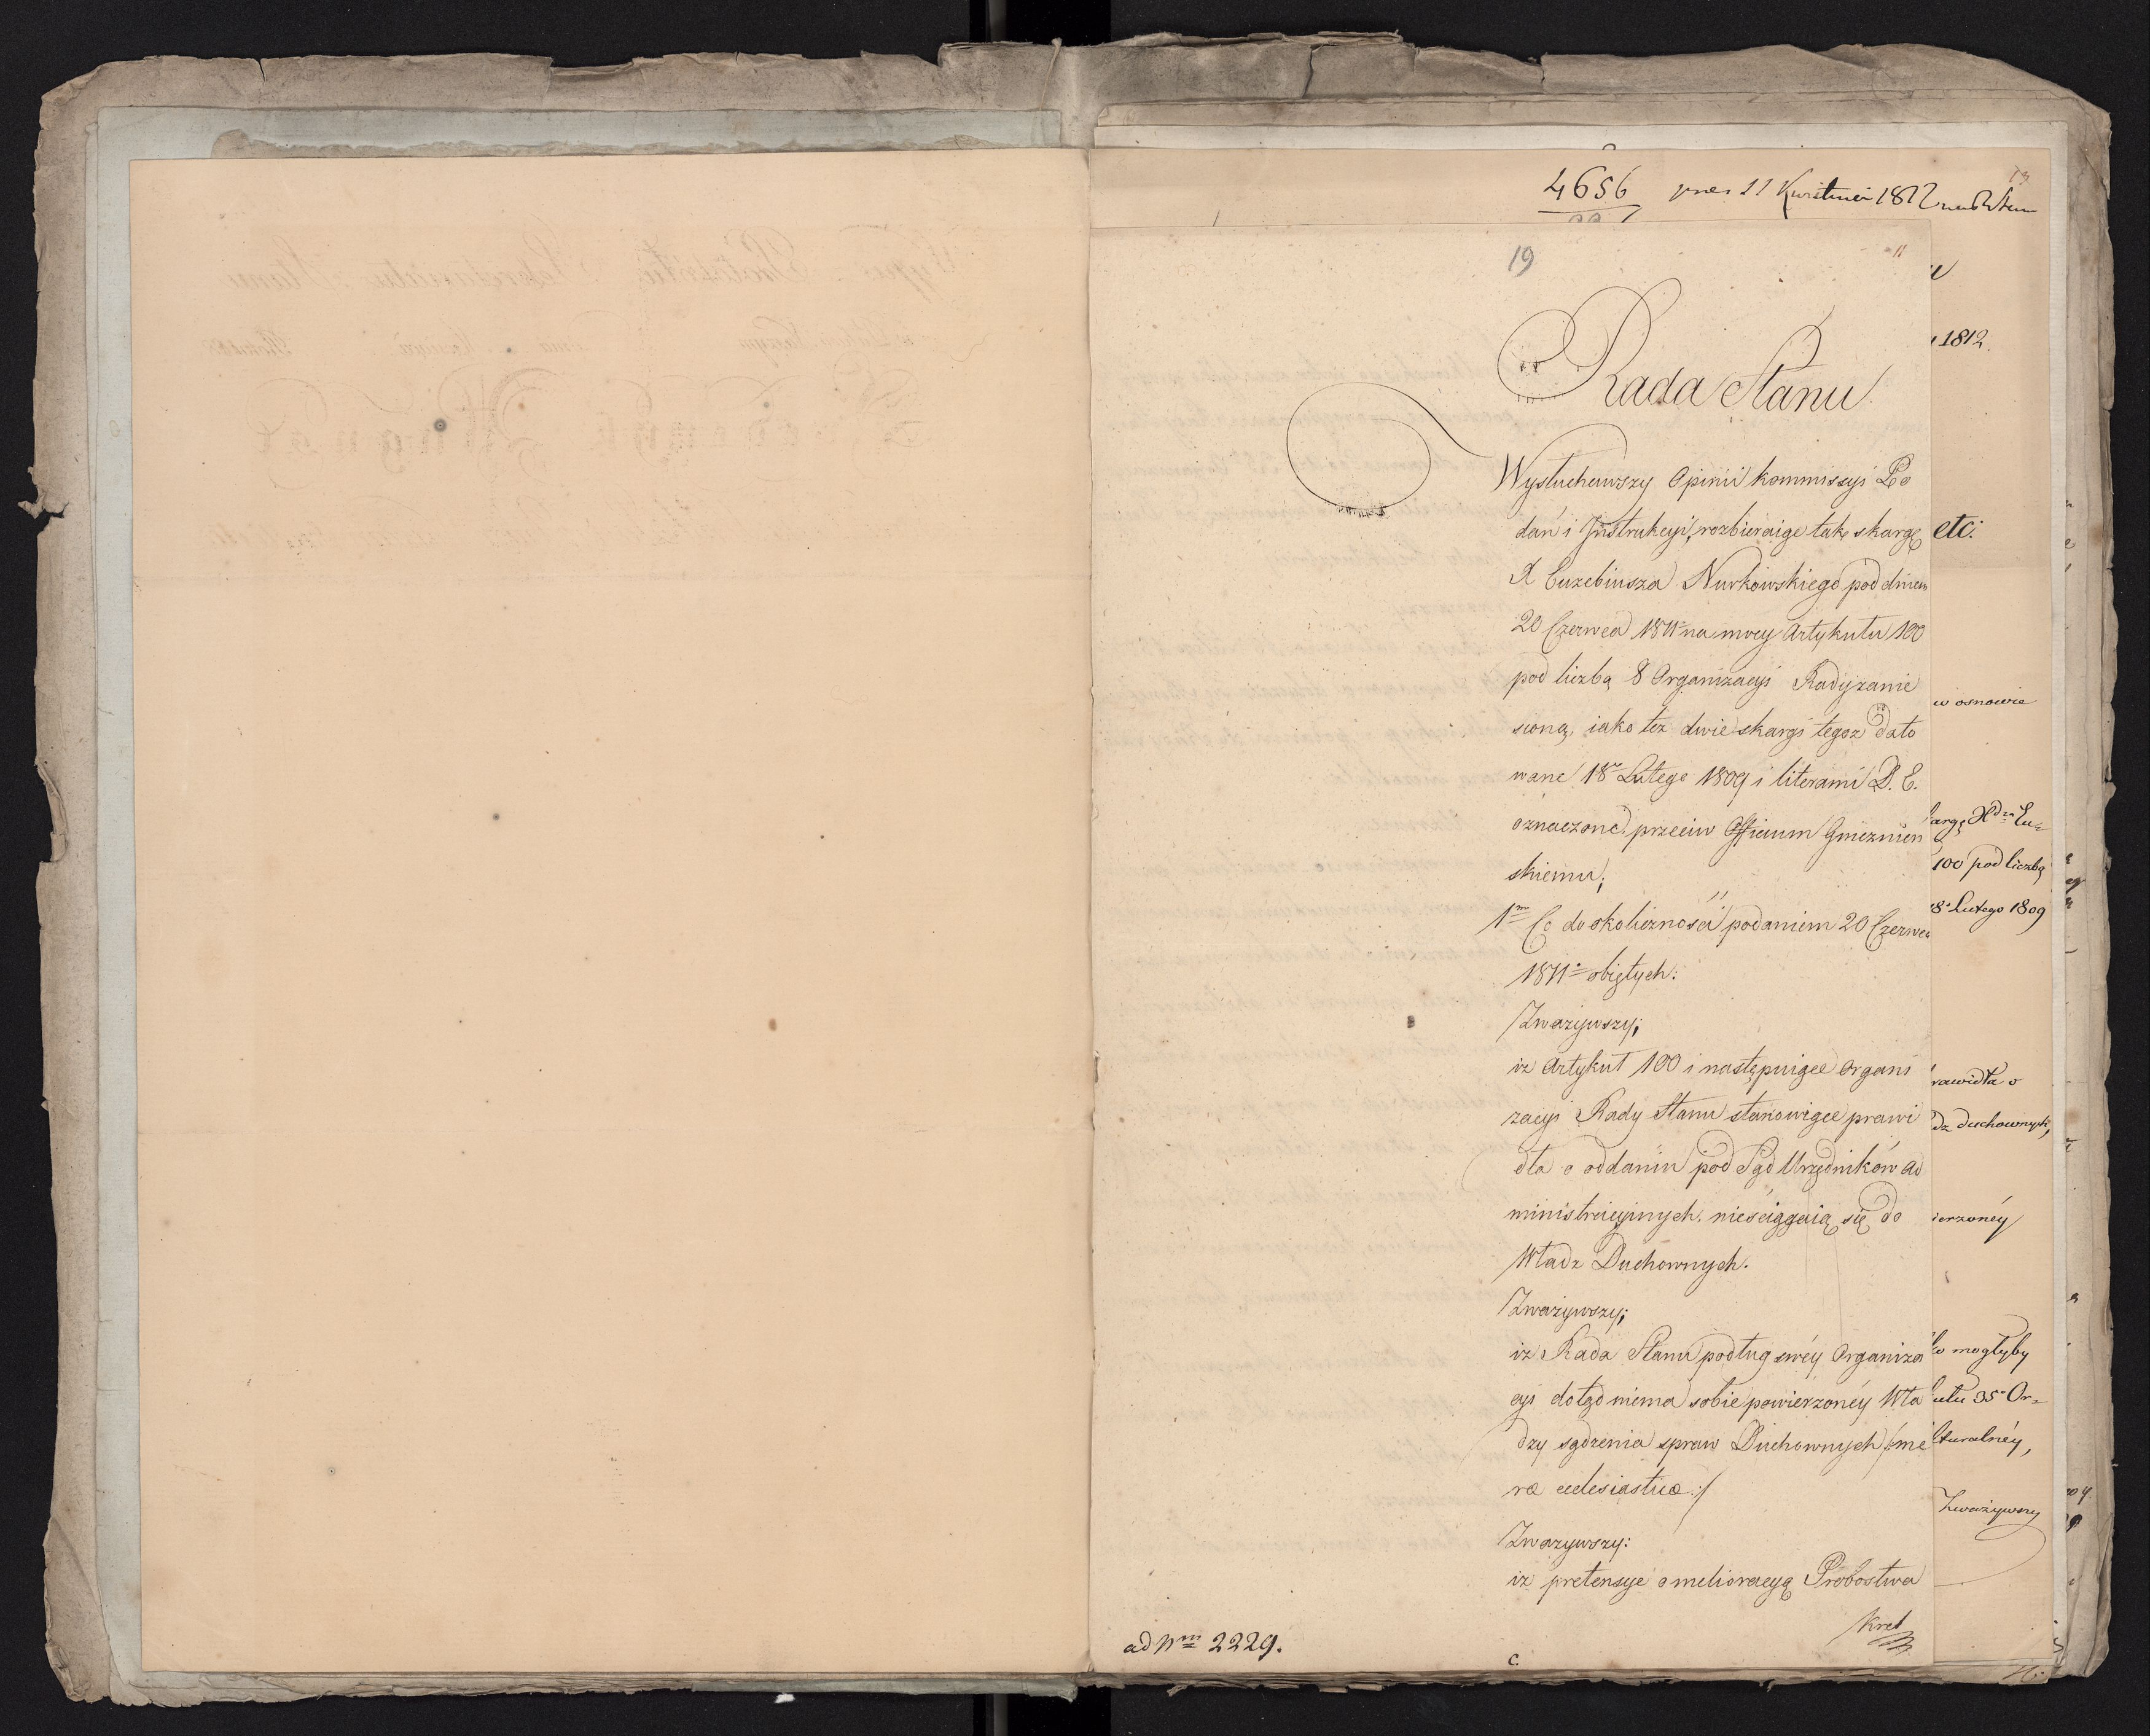 4656 11 Kwietnia 1812
13
19
11
Rada Stanu
Wysłuchawszy Opinii kommissyi Po
dań i Jnstrukcyi, rozbieraiąc tak skargę
X Euzebiusza Nurkowskiego pod dniem
20 Czerwca 1811 na mocy Artykułu 100
pod liczbą 8 Organizacyi Rady, zanie
sioną, iako też dwie skargi tegoż dato
wane 18º Lutego 1809 i literami D. E.
oznaczone, przeciw Officium Gnieznien
skiemu;
1m Co do okoliczności podaniem 20 Czerwca
1811º obiętych:
Zważywszy;
iż Artykuł 100 i następuiące Organi
zacyi Rady Stanu stanowiące prawi
dła o oddaniu pod Sąd Urzędników ad
ministracyinych, nieściągaią się do
Władz Duchownych.
Zważywszy;
iż Rada Stanu podług swéy Organiza
cyi dotąd niema sobie powierzonéy Wła
dzy sądzenia spraw Duchownych /:me
ræ eclesiasticæ:/
Zważywszy:
iż pretensye o melioracyą Probostwa
Kret
ad Nm 2229.
C.
1812.
etc:
w osnowie
argę Xdza Eu=
100 pod liczbą
18º Lutego 1809
rawidła o
dz duchownych,
ierzonéy
ko mogłyby
ułu 35º Or=
lturalnéy,
Zważywszy